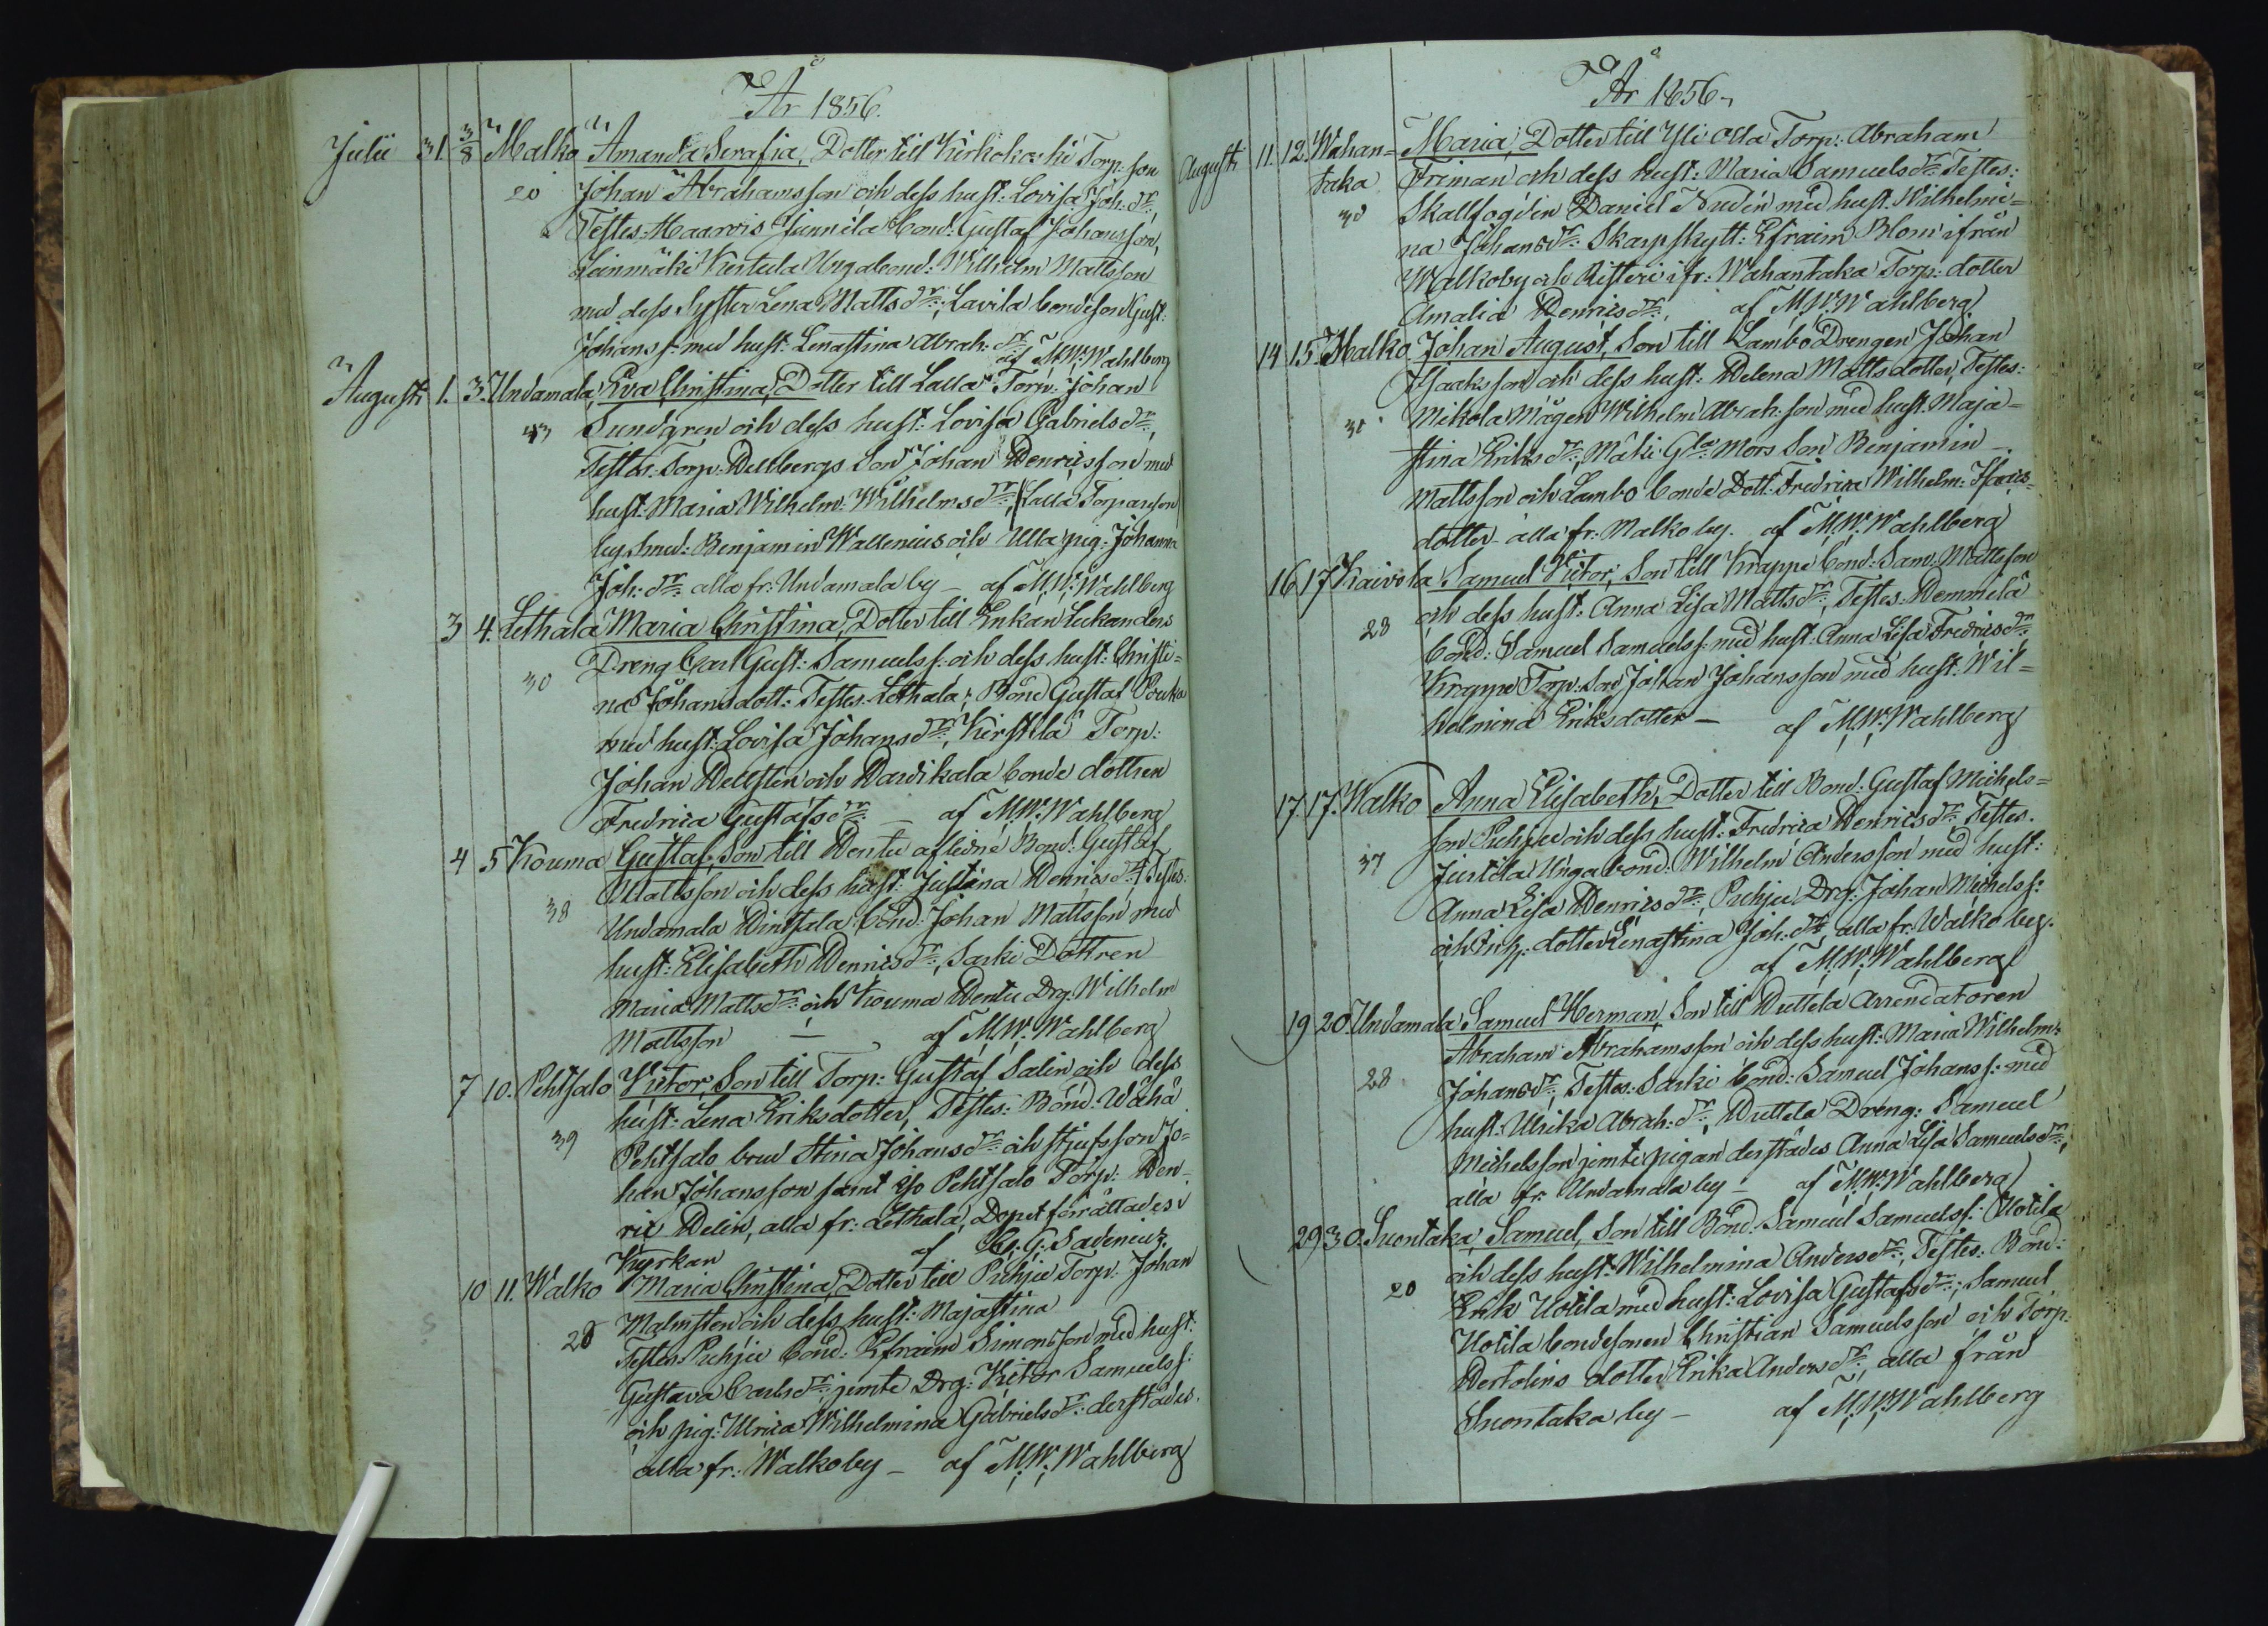 År 1856.
Julii 31. 3/8 Malko Amanda Serafia, Dotter till Kirkokoski Torp: son
20 Johan Abrahamsson och dess hust: Lovisa Joh: dr
Testes. Maarois Junnila bond: Gustaf Johansson,
Leinmäki Knuteela Ungabond: Wilhelm Mattsson
med dess Syster Lena Matts dr:, Lavila bondeson Gust:
Johanss: med hust: Lenastina Abrah: dr: af M. W. Wahlberg
Augusti 1. 3. Undamala, Eva Christina, Dotter till Lalla Torp: Johan
43 Sundgren och dess hust: Lovisa Gabriels dr:,
Testes. Torp: Hellbergs Son Johan Henricsson med
hust: Maria Wilhelm: Wilhelms dr:, Lalla Torpareson
bysmed: Benjamin Wallenius och Ulla pig: Johanna
Joh: dr: alla fr: Undamala by – af M. W. Wahlberg
3 4. Lethala Maria Christina, Dotter till Enkan Lukanders
Dreng Carl Gust: Samuelss: och dess hust: Christi=
30 na Johansdott: Testes. Lethala, Bond Gustaf Pouka
med hust: Lovisa Johans dr:, Kirstilä Torp:
Johan Hellsten och Hardikala bonde dottren
Fredrica Gustafs dr: – af M. W. Wahlberg
4 5 Kouma Gustaf, Son till Hentu aflidne Bond: Gustaf
Mattsson och dess hust: Justina Henrics dr: Testes.
38 Undamala Hintsala bond: Johan Mattsson med
hust: Elisabeth Henrics dr:, Sarki Dottren
Maria Matts dr: och Kouma Hentu Drg: Wilhelm
Mattsson – af M. W. Wahlberg
7 10. Pehtsalo Victor, Son till Torp: Gustaf Salin och dess
hust: Lena Eriksdotter, Testes: Bond: Wähä
39 Pehtsalo brud Stina Johans dr: och stjufsson Jo=
han Johansson samt Iso Pehtsalo Torp: Hen-
ric Helin, alla fr: Lethala, Dopet förrättades i
Kyrkan af G. G. Sadenius.
10 11. Walko Maria Christina, Dotter till Puhju Torp: Johan
28 Malmsten och dess hust: Majastina
Testes. Puhju bond: Efraim Simonsson med hust:
Gustava Carls dr: jemte Drg: Victor Samuelss:
och pig: Ulrica Wilhelmina Gabriels dr: derstädes.
alla fr: Walkoby – af M. W. Wahlberg
År 1856.
Augusti 11. 12. Wahan= Maria, Dotter till Yli Olla Torp: Abraham
taka Friman och dess hust: Maria Samuels dr: Testes:
30 Skallfogden Daniel Nudin med hust: Wilhelmi=
na Johans dr: Skarpskytt: Efraim Blom ifrån
Malkoby och Ritteri ifr: Wahantaka Torp: dotter
Amalia Henrics dr:, af M. W. Wahlberg
14 15 Malko Johan August, Son till Lambo Drengen Johan
Isaaksson och dess hust: Helena Mattsdotter, Testes:
31 Mikola Mågen Wilhelm Abrah:son med hust: Maja=
stina Eriks dr:, Mäki Gla Mors Son Benjamin
Mattsson och Lambo bonde Dott: Fredrica Wilhelm: Isaacs=
dotter alla fr: Malko by. af M. W. Wahlberg
16 17 Kaivola Samuel Victor, Son till Krappe bond: Sam: Mattsson
och dess hust: Anna Lisa Matts dr:, Testes. Hemmilä
28 bond: Samuel Samuelss: med hust: Anna Lisa Fredrics dr:
Krappe Torp: Son Johan Johansson med hust: Wil=
helmina Eriksdotter – af M. W. Wahlberg
17. 17. Walko Anna Elisabeth, Dotter till Bond: Gustaf Michels=
son Puhjue och dess hust: Fredrica Henrics dr: Testes.
37 Juntila Unga bond: Wilhelm Andersson med hust:
Anna Lisa Henrics dr:, Puhju Drg: Johan Michelss:
och Inh: dotter Lenastina Joh: dr:, alla fr: Walko by.
af M. W. Wahlberg
19 20. Undamala Samuel Herman, Son till Huttela Arrendatoren
Abraham Abrahamsson och dess hust: Maria Wilhelm:
28 Johans dr:, Testes: Sarki bond: Samuel Johanss: med
hust: Ulrika Abrah: dr:, Huttela Dreng: Samuel
Michelsson jemte pigan derstädes Anna Lisa Samuels dr:,
alla fr: Undamala by – af M. W. Wahlberg
29 30. Suontaka, Samuel, Son till Bond: Samuel Samuelss: Uotila
och dess hust: Wilhelmina Anders dr:, Testes: Bond:
20 Erik Uotila med hust: Lovisa Gustafs dr:, Samuel
Uotila bondesonen Christian Samuelsson och Torp:
Hertolins dotter Erika Anders dr:, alla från
Suontaka by – af M. W. Wahlberg